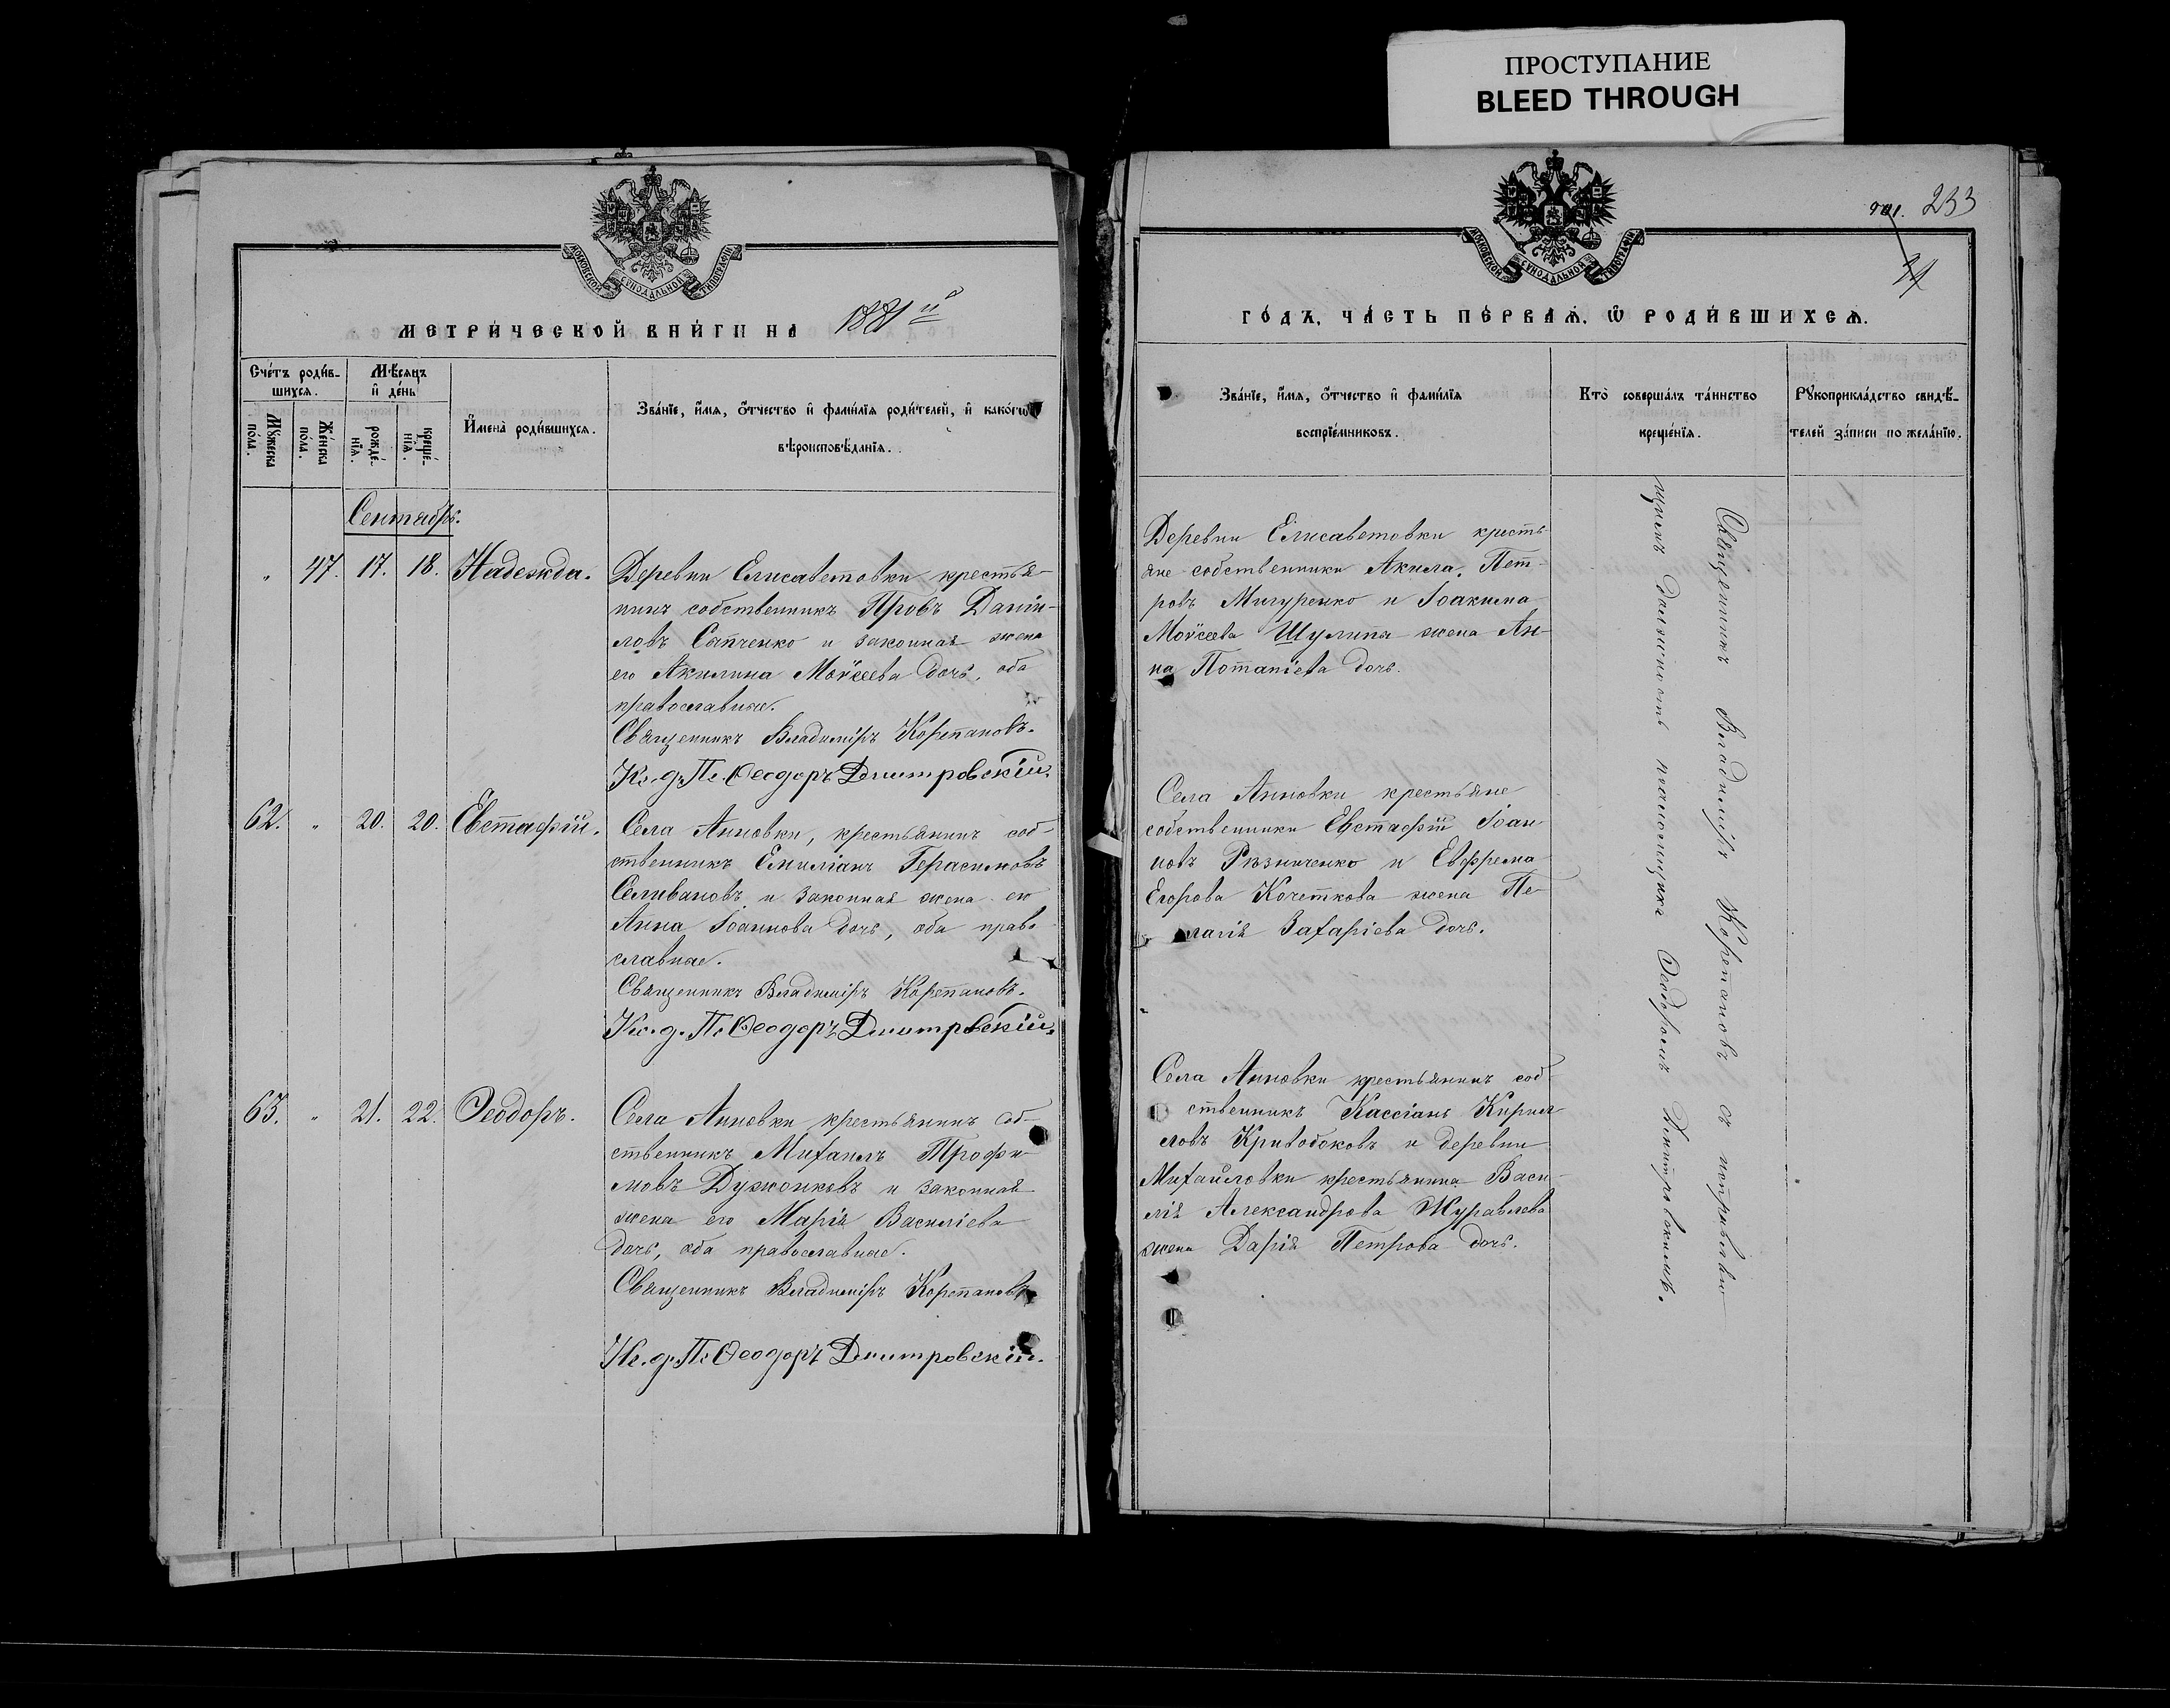 ПРОСТУПАНИЕ
BLEED THROUGH
МОСКОВСКОЙ СѴНОДАЛЬНОЙ ТИПОГРАФІИ
МЕТРИ́ЧЕСКОЙ КНИ́ГИ НА 1881й
Сче́тъ роди́в-
шихся.
Мѣ́сяцъ
и҆ де́нь
Мꙋ́жеска
по́ла.
Же́нска
по́ла.
рожде́-
нїѧ.
креще́-
нїѧ.
И҆мена̀ роди́вшихсѧ.
Зва́нїе, и҆́мѧ, ѻ҆́тчество и҆ фами́лїѧ роди́телей, и҆ како́гѡ
вѣроисповѣ́данїѧ.
Сентябрь.
„ 47. 17. 18. Надежда.
Деревни Елисаветовки крестья-
нинъ собственникъ Провъ Даніи-
ловъ Сапченко и законная жена
его Акилина Моѵсеева дочь, оба
православные.
Священникъ Владиміръ Корепановъ.
И. д. Пс. Ѳеодоръ Дмитровскій.
62. „ 20. 20. Евстафій.
Села Анновки, крестьянинъ соб-
ственникъ Емиліанъ Герасимовъ
Селивановъ и законная жена его
Анна Іоаннова дочь, оба право
славные.
Священникъ Владиміръ Корепановъ.
И. д. Пс. Ѳеодоръ Дмитровскій.
63. „ 21. 22. Ѳеодоръ.
Села Анновки крестьянинъ соб-
ственникъ Михаилъ Трофи-
мовъ Дужонковъ и законная
жена его Марія Василіева
дочь, оба православные.
Священникъ Владиміръ Корепановъ
И. д. Пс. Ѳеодоръ Дмитровскій.
901. 233
31
МОСКОВСКОЙ СѴНОДАЛЬНОЙ ТИПОГРАФІИ
ГО́ДЪ, ЧА́СТЬ ПЕ́РВАѦ, Ѡ҆ РОДИ́ВШИХСѦ.
Зва́нїе, и҆́мѧ, ѻ҆́тчество и҆ фами́лїѧ
воспрїе́мниковъ.
Кто̀ соверша́лъ та́инство
креще́нїѧ.
Рꙋкоприкла́дство свидѣ́-
телей за́писи по жела́нїю.
Деревни Елисаветовки кресть
яне собственники Акила Пет-
ровъ Мигуренко и Іоакима
Моѵсеева Шулипа жена Ан-
на Потапіева дочь.
Села Анновки крестьяне
собственники Евстафій Іоан
новъ Рѣзниченко и Евфрема
Егорова Кочеткова жена Пе-
лагія Захаріева дочь.
Села Анновки крестьянинъ соб
ственникъ Кассіанъ Кирил
ловъ Кривобоковъ и деревни
Михайловки крестьянина Васи-
лія Александрова Журавлева
жена Дарія Петрова дочь.
Священникъ Владиміръ Корепановъ съ исправляю
щимъ должность псаломщика Ѳеодоромъ Дмитровскимъ.